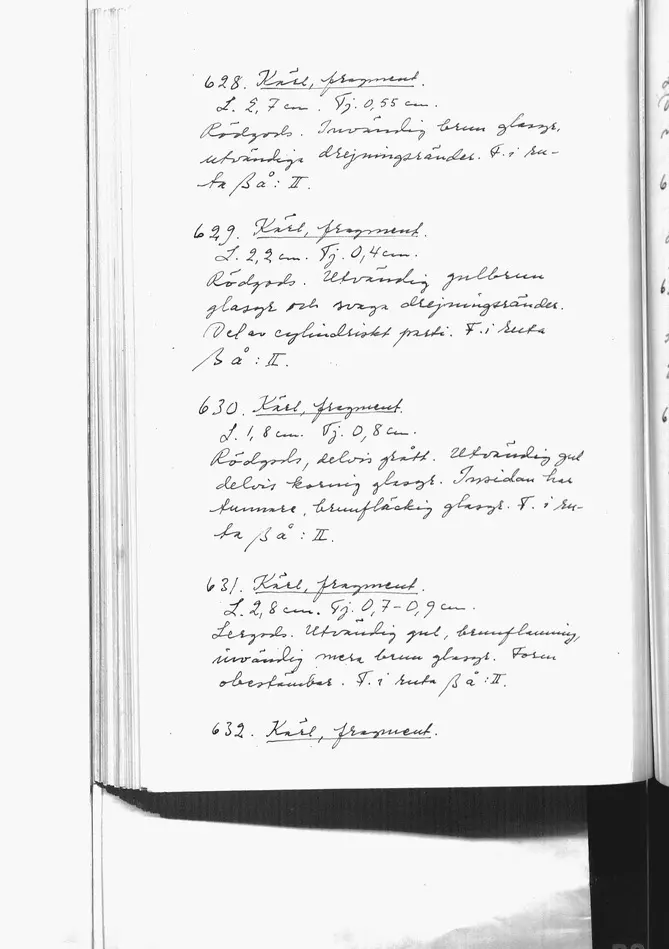 628. Kärl, fragment.
L. 2,7 cm. Tj. 0,55 cm.
Rödgods. Invändig brun glasyr,
utvändiga drejningsränder. F. i ru-
ta ß å : II.
629. Kärl, fragment.
L. 2,2 cm. Tj. 0,4 cm.
Rödgods. Utvändig gulbrun
glasyr och svaga drejningsränder.
Del av cylindriskt parti. F. i ruta
ß å : II.
630. Kärl, fragment.
L. 1,8 cm. Tj. 0,8 cm.
Rödgods, delvis grått. Utvändig gul
delvis kornig glasyr. Insidan har
tunnare, brunfläckig glasyr. F. i ru-
ta ß å : II.
631. Kärl, fragment.
L. 2,8 cm. Tj. 0,7-0,9 cm.
Lergods. Utvändig gul, brunflammig,
invändig mera brun glasyr. Form
obestämbar. F. i ruta ß å : II.
632. Kärl, fragment.